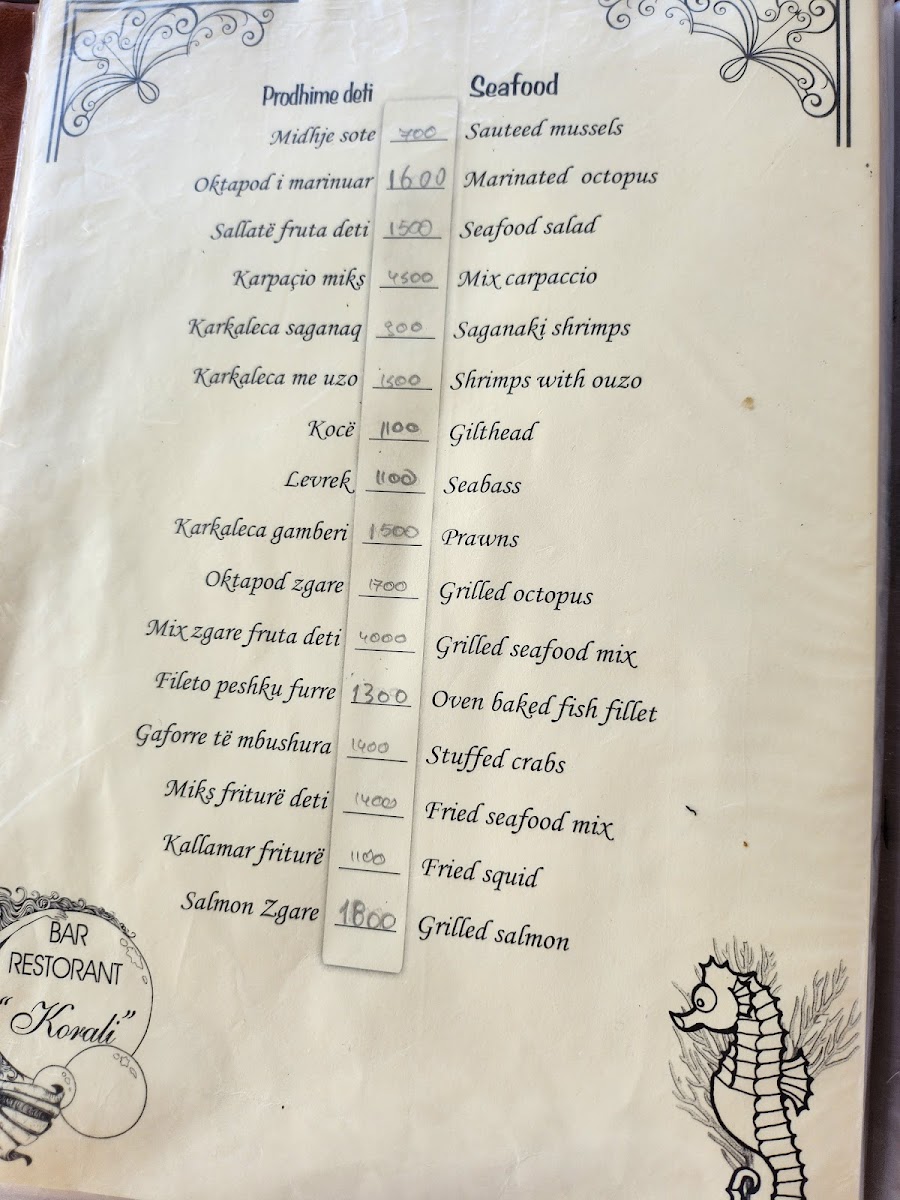 Prodhime deti Seafood
Midhje sote 700 Sauteed mussels
Oktapod i marinuar 1600 Marinated octopus
Sallatë fruta deti 1500 Seafood salad
Karpaçio miks Mix carpaccio
Karkaleca saganaq 900 Saganaki shrimps
Karkaleca me uzo Shrimps with ouzo
Kocë 1100 Gilthead
Levrek 1100 Seabass
Karkaleca gamberi 1500 Prawns
Oktapod zgare 1700 Grilled octopus
Mix zgare fruta deti 4000 Grilled seafood mix
Fileto peshku furre 1300 Oven baked fish fillet
Gaforre të mbushura 1400 Stuffed crabs
Miks friturë deti 1400 Fried seafood mix
Kallamar friturë 1100 Fried squid
Salmon Zgare 1800 Grilled salmon
BAR
RESTORANT
“Korali”